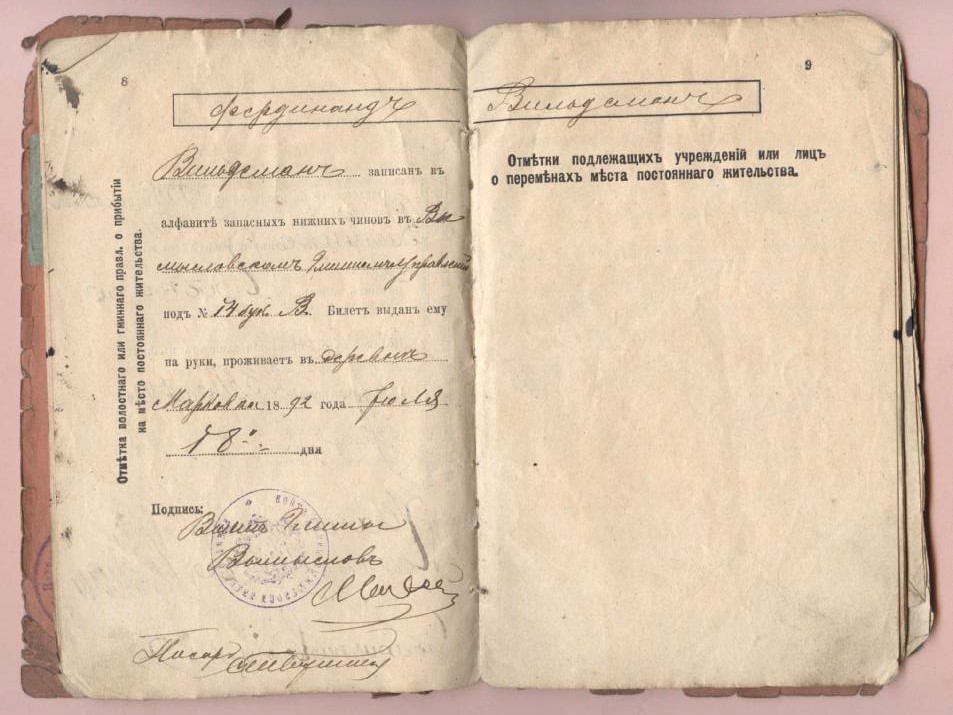 8
Фердинандъ
Отмѣтка волостнаго или гминнаго правл. о прибытіи
на мѣсто постояннаго жительства.
Вильдеманъ записанъ въ
алфавитѣ запасныхъ нижнихъ чиновъ въ Вы
мысловскомъ Гминномъ Управленіи
подъ № 14 бук. В. Билетъ выданъ ему
на руки, проживаетъ въ деревнѣ
1892 года Іюля
18 дня
Подпись:
Войтъ Гмины
Вымысловъ
Писарь
9
Вильдеманъ
Отмѣтки подлежащихъ учрежденій или лицъ
о перемѣнахъ мѣста постояннаго жительства.